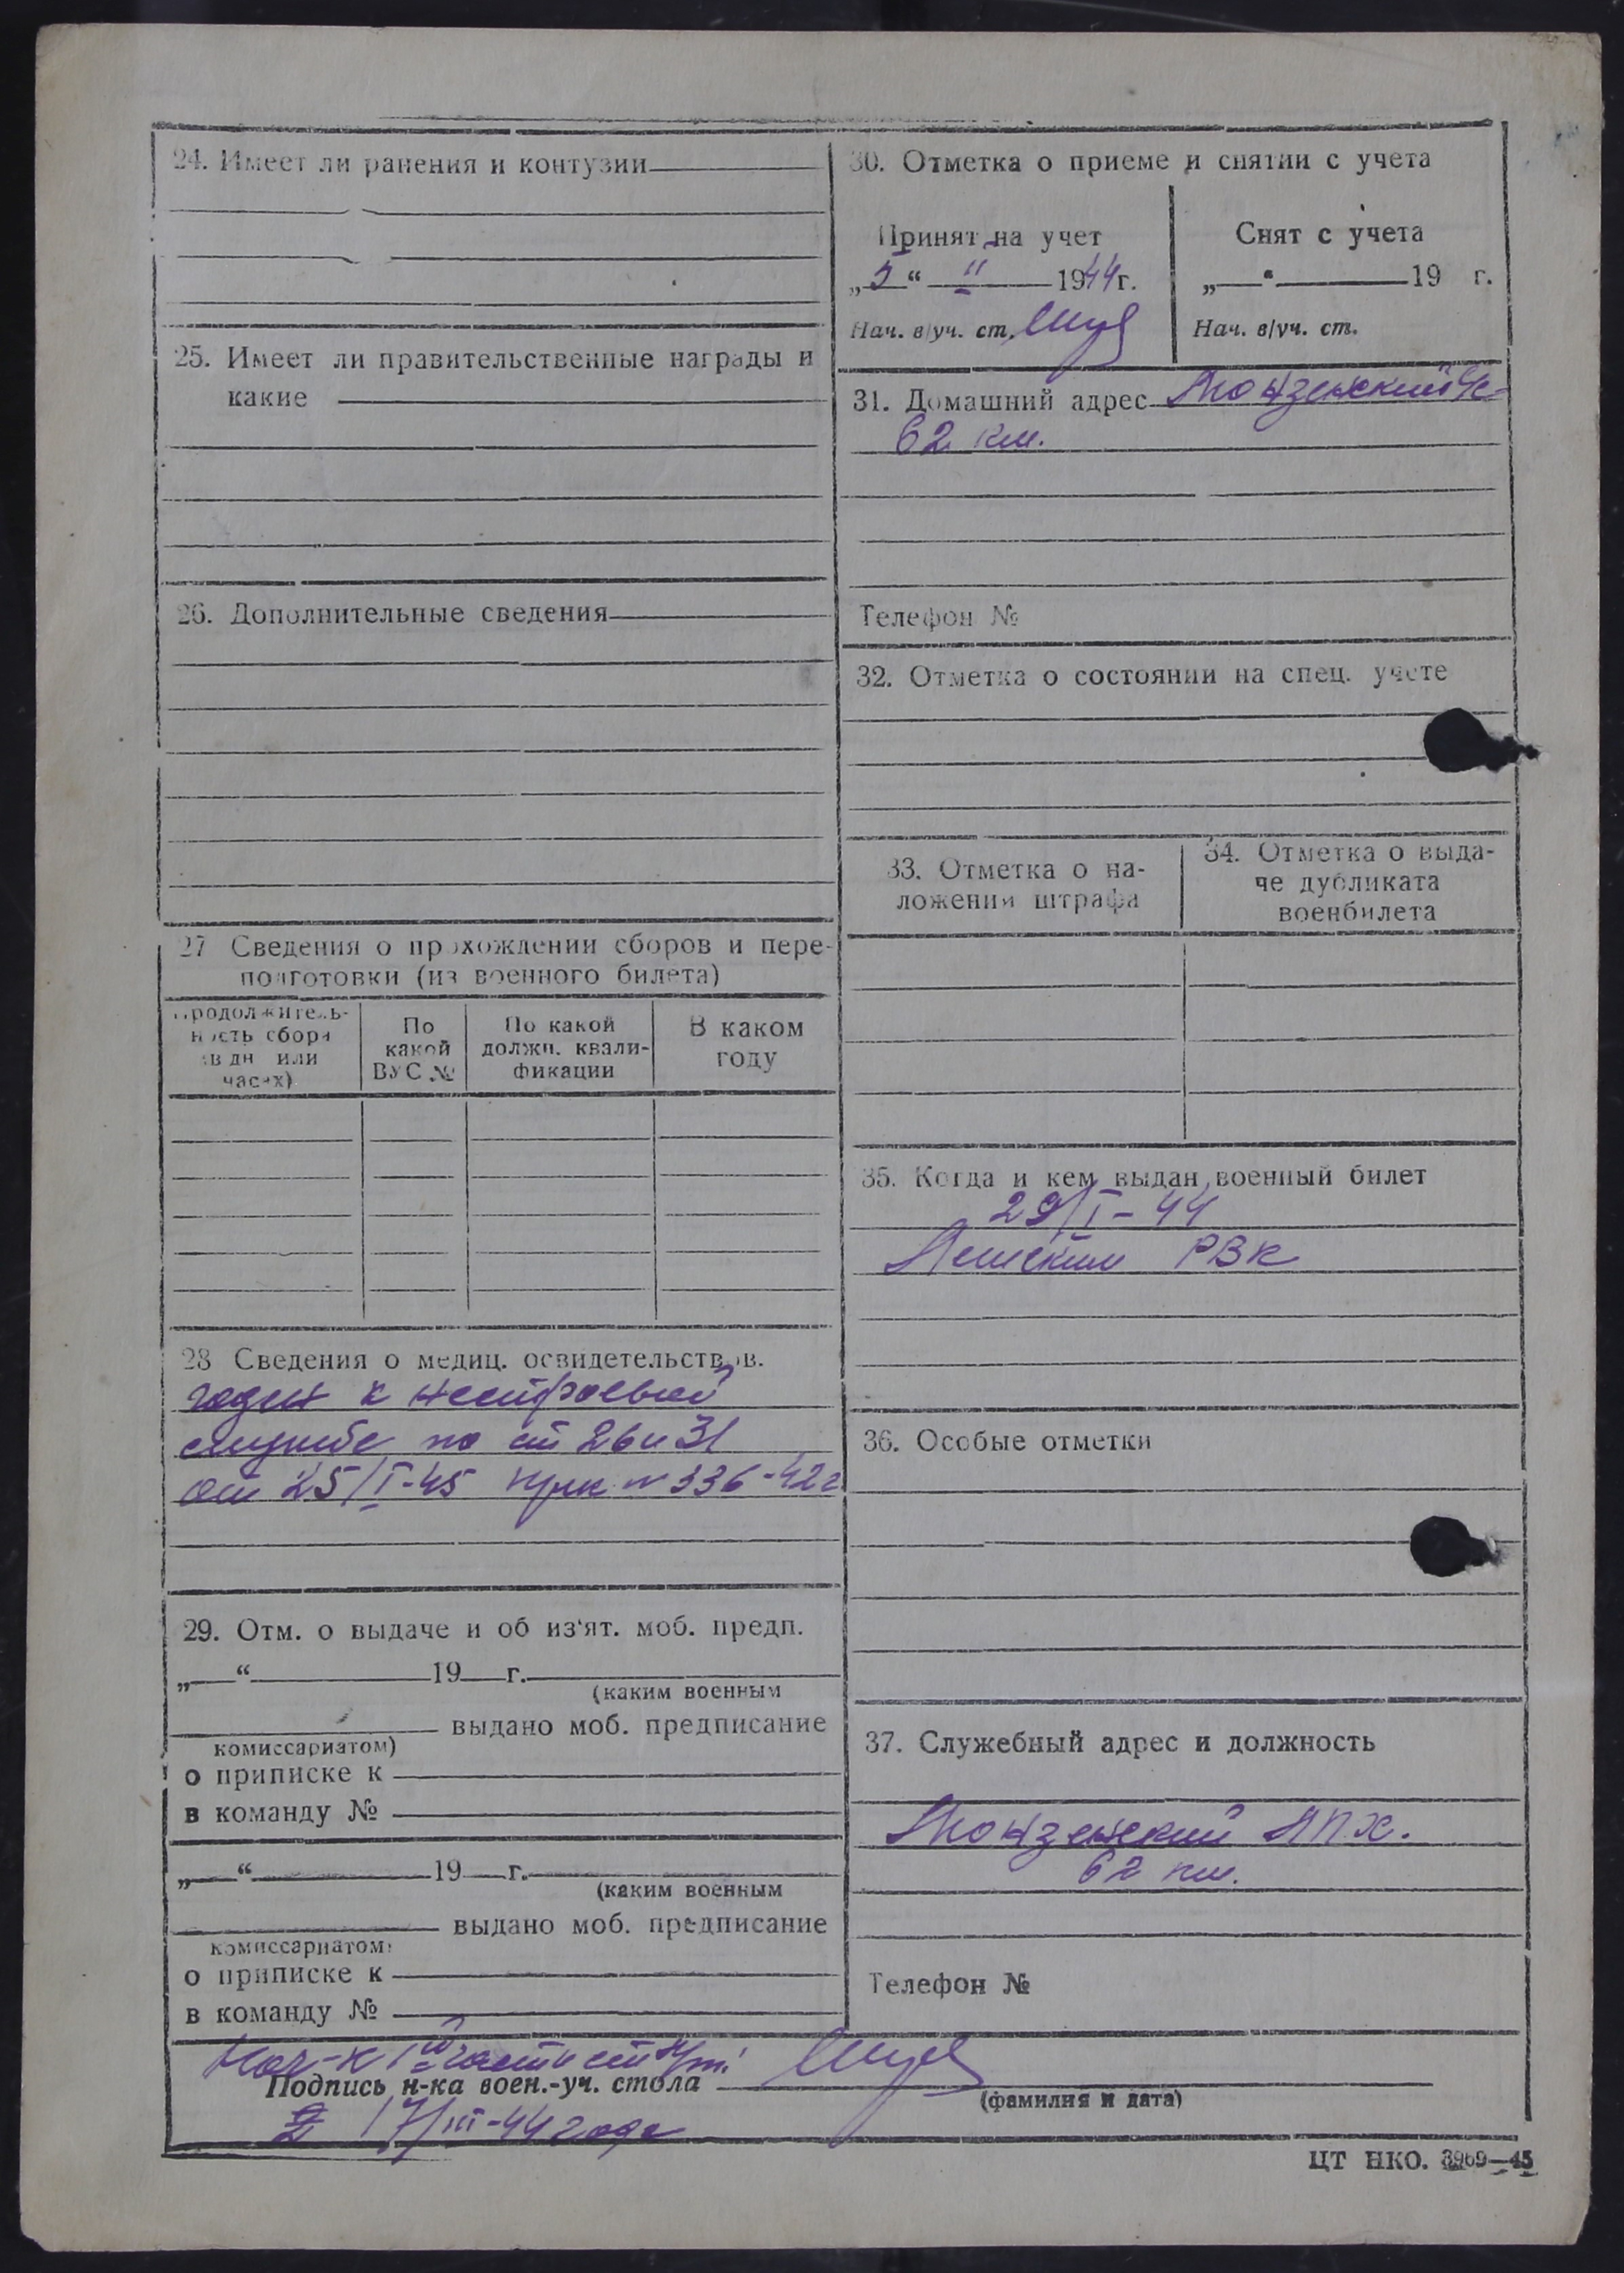 24. Имеет ли ранения и контузии
25. Имеет ли правительственные награды и
какие
26. Дополнительные сведения
27 Сведения о прохождении сборов и пере-
подготовки (из военного билета)
Продолжитель-
ность сбора
(в дн или
часах)
По
какой
ВУС №
По какой
должн. квали-
фикации
В каком
году
28 Сведения о медиц. освидетельствов.
годен к нестроевой
службе по ст 26 и 31
от 25/I-45 прик № 336-42г
29. Отм. о выдаче и об из'ят. моб. предп.
„ “ 19 г.
(каким военным
выдано моб. предписание
комиссариатом)
о приписке к
в команду №
„ “ 19 г.
(каким военным
выдано моб. предписание
комиссариатом)
о приписке к
в команду №
30. Отметка о приеме и снятии с учета
Принят на учет
„5“ II 1944г.
Нач. в/уч. ст.
Снят с учета
„ “ 19 г.
Нач. в/уч. ст.
31. Домашний адрес Монзенский
62 км.
Телефон №
32. Отметка о состоянии на спец. учете
33. Отметка о на-
ложении штрафа
34. Отметка о выда-
че дубликата
военбилета
35. Когда и кем выдан военный билет
29/I-44
РВК
36. Особые отметки
37. Служебный адрес и должность
Монзенский ЛПХ.
62 км.
Телефон №
Нач-к части
Подпись н-ка воен.-уч. стола
(фамилия и дата)
17/III-44 года
ЦТ НКО. 3969—45